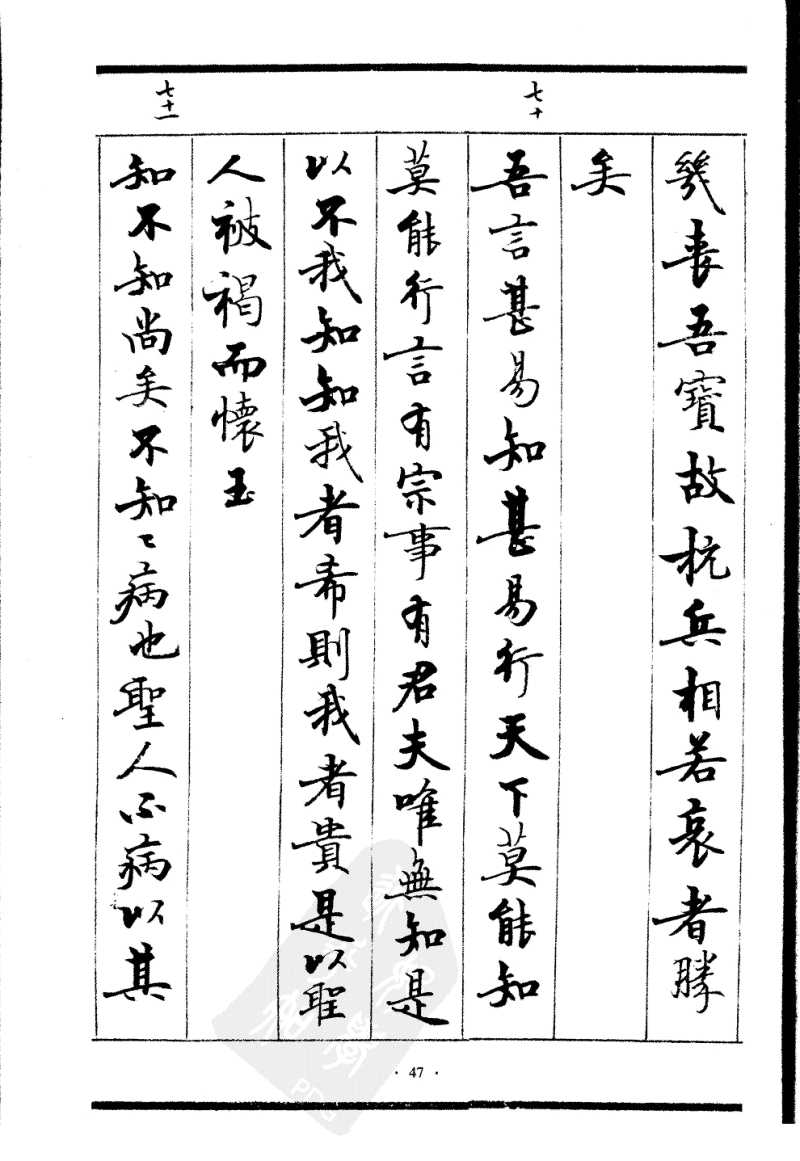 幾喪吾寶故抗兵相若哀者勝
矣
七十
吾言甚易知甚易行天下莫能知
莫能行言有宗事有君夫唯無知是
以不我知知我者希則我者貴是以聖
人被褐而懷玉
七十一
知不知尚矣不知〻病也聖人不病以其
· 47 ·